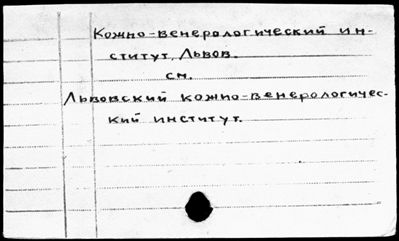 Кожно-венерологический ин-
ститут, Львов.
см.
Львовский кожно-венерологичес-
кий институт.